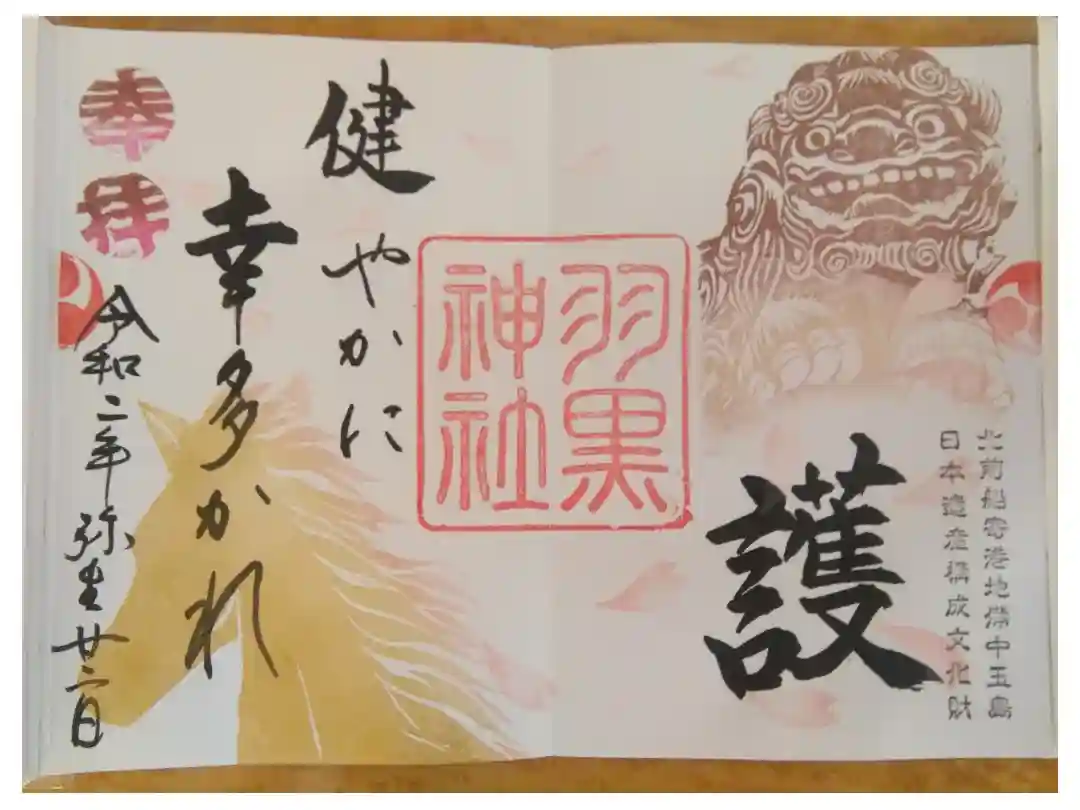 北前船寄港地備中玉島
日本遺産構成文化財
護
羽黒
神社
健やかに
幸多かれ
奉拝
令和二年弥生廿二日